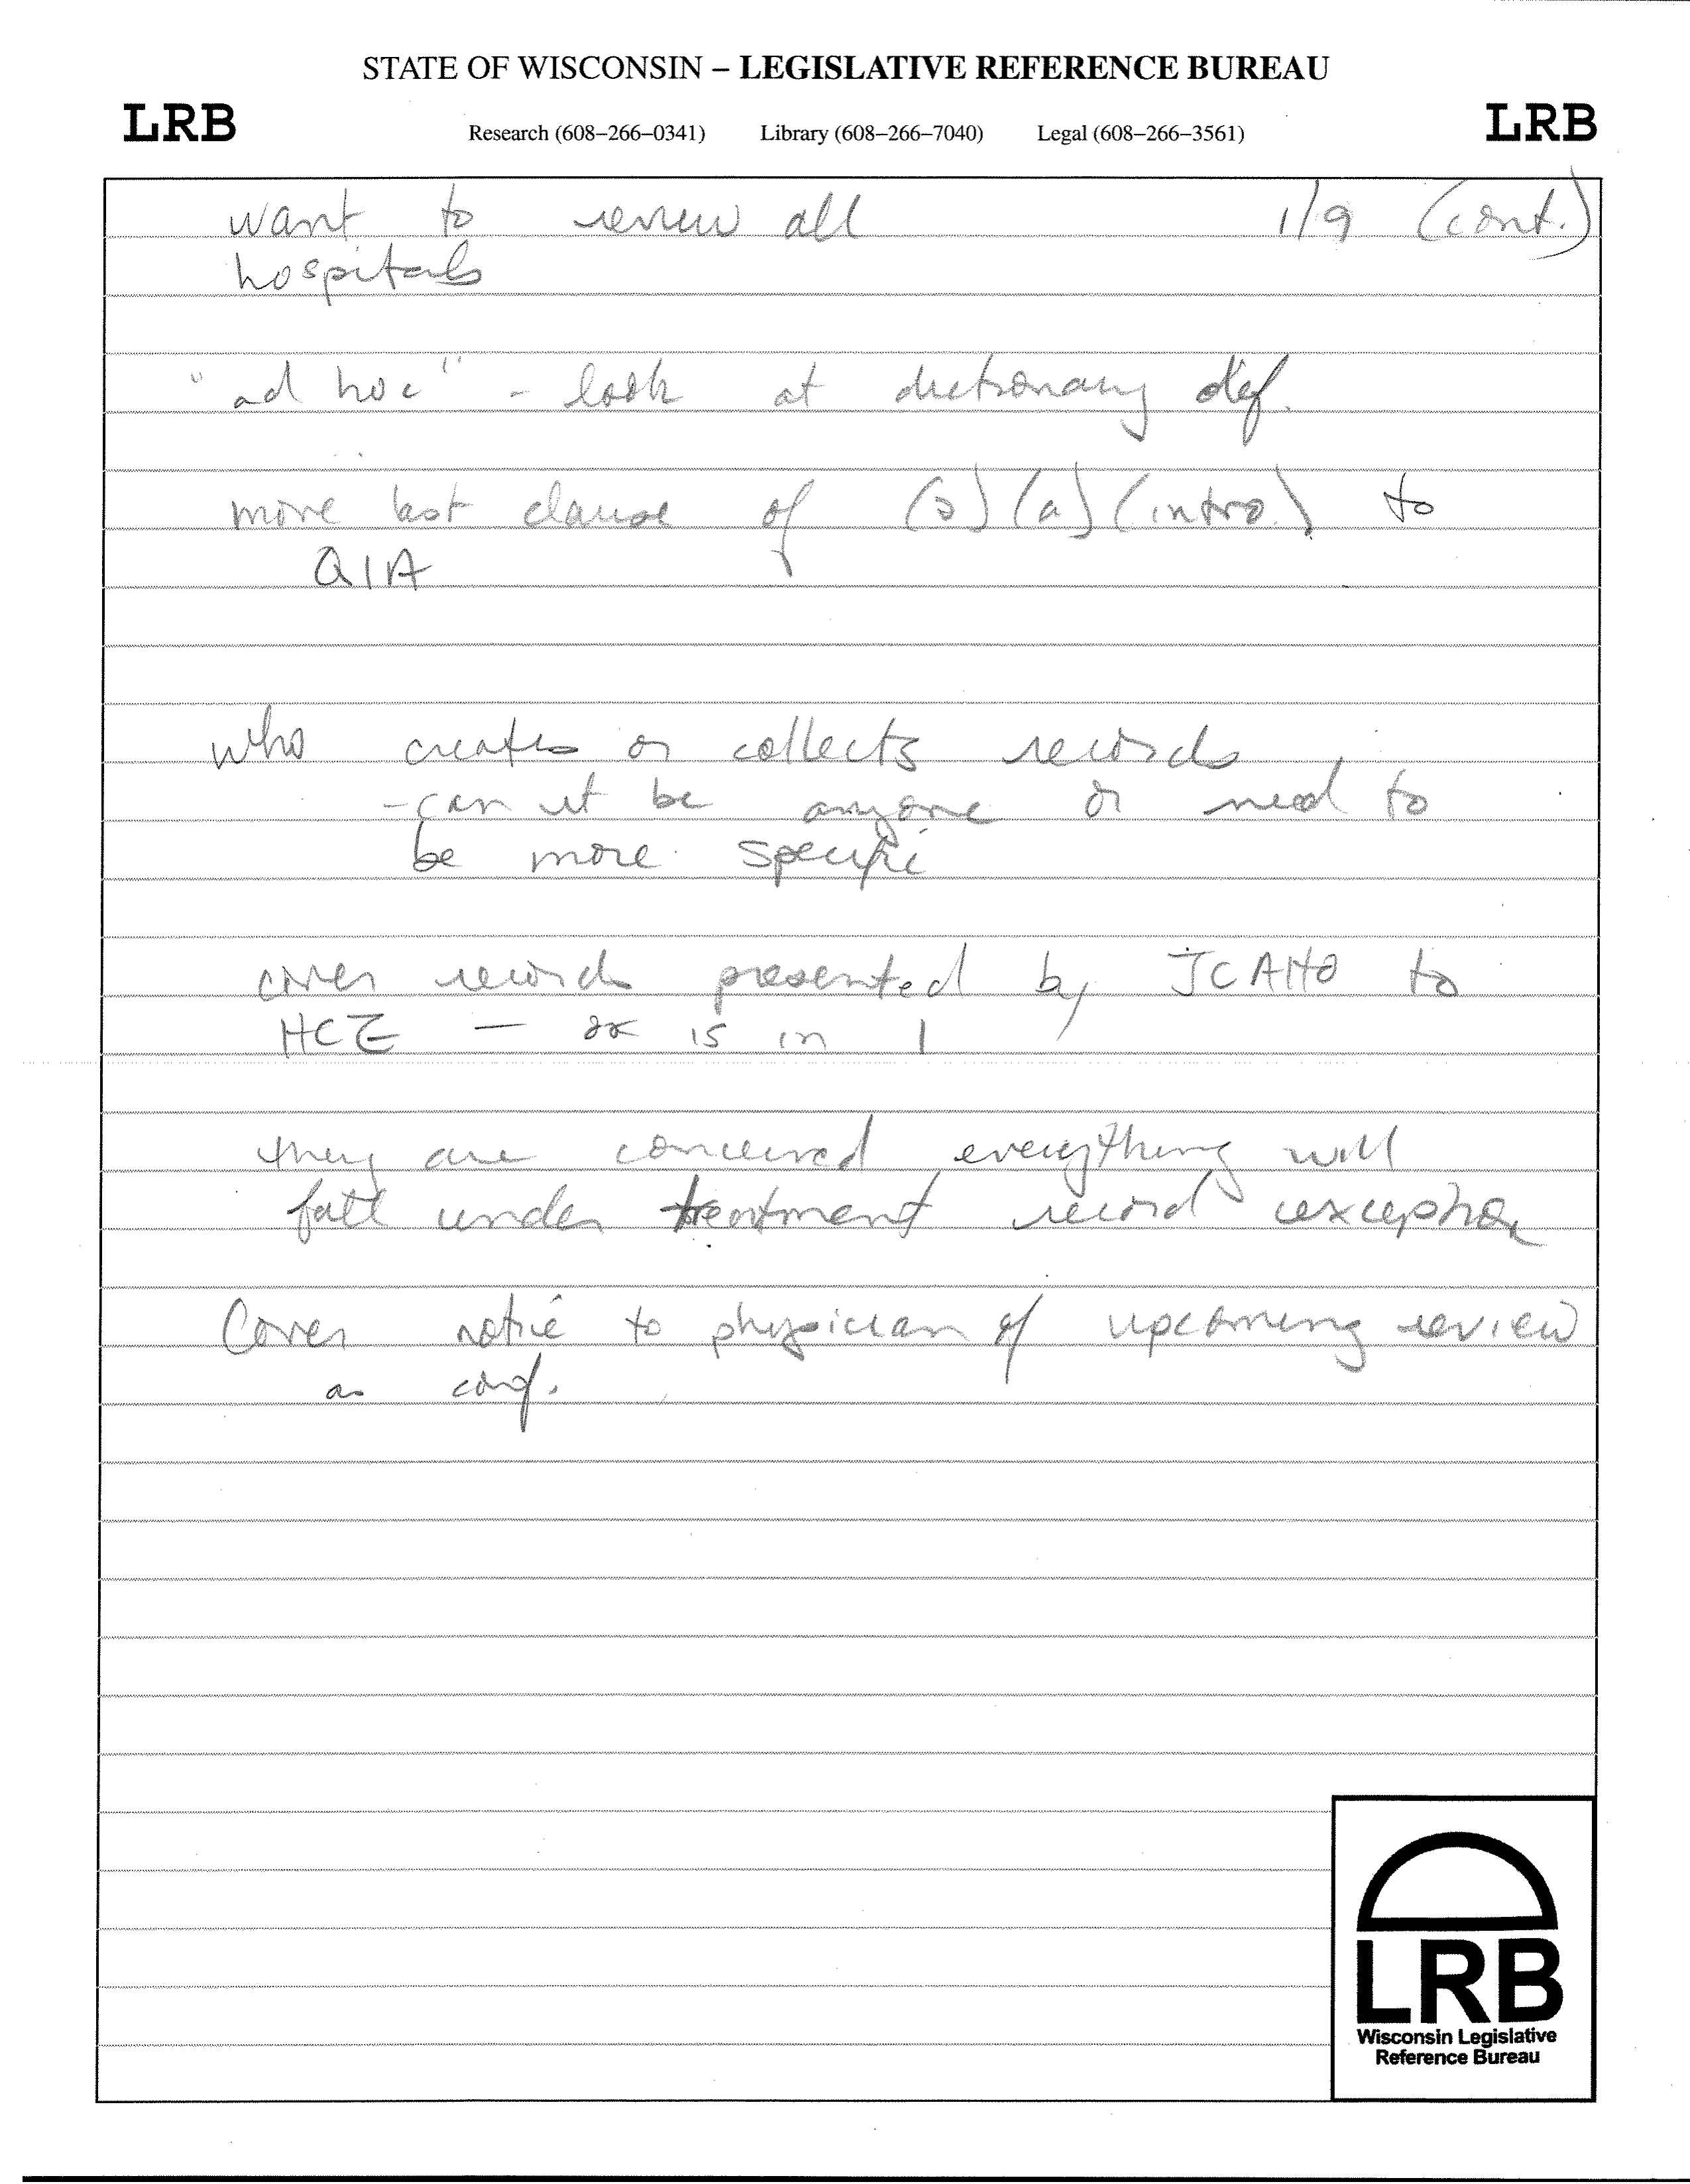 STATE OF WISCONSIN – LEGISLATIVE REFERENCE BUREAU
LRB
Research (608–266–0341) Library (608–266–7040) Legal (608–266–3561)
LRB
want to review all 1/9 (cont.)
hospitals
"ad hoc" - look at dictionary def.
move last clause of (a) (intro.) to
QIA
who creates or collects records
- can it be anyone or need to
be more specific
cover records presented by JCAHO to
HCE — is in 1
they are concerned everything will
fall under treatment record exception
Cover notice to physician of upcoming review
as conf.
LRB
Wisconsin Legislative
Reference Bureau